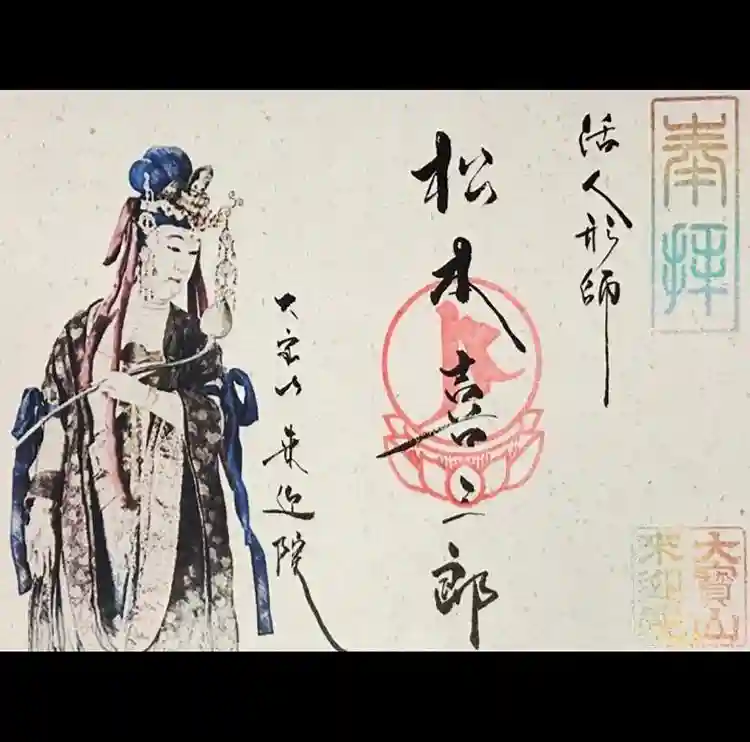 奉拝
活人形師
松本喜三郎
大宝山 来迎院
大寳山
来迎院